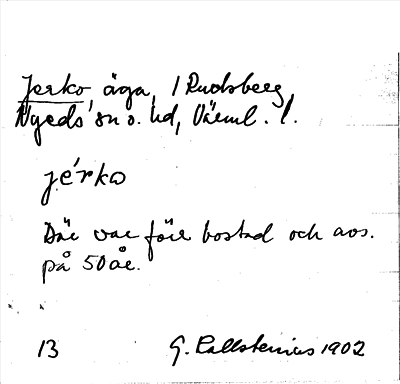 Jerko, äga, / Rudsberg,
Nyeds sn o. hd, Värml. l.
jérko
Där var förr bostad och avs.
på 50 år.
13 G. Kallstenius 1902